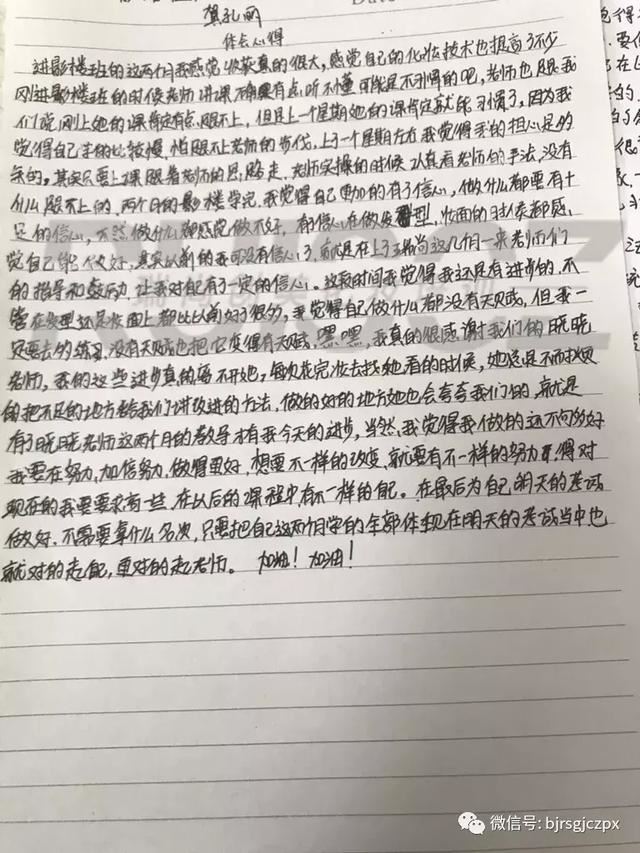 Date
龚孔丽
体会心得
进影楼班的这两个月我感觉收获真的很大,感觉自己的化妆技术也提高了不少
刚进影楼班的时候老师讲课,有点听不懂可能是不习惯的吧,老师也跟我
们说,刚上她的课肯定有点跟不上,但是上一个星期她的课肯定就能习惯了,因为我
觉得自己的比较慢,怕跟不上老师的步伐,上了一个星期左右我觉得我的担心是多
余的。其实只要上课跟着老师的思路走,老师实操的时候认真看老师的手法,没有
什么跟不上的,两个月的影楼学完,我觉得自己更加的有了信心,做什么都要有十
足的信心,不然做什么都感觉做不好,有信心在做发型,妆面的时候都感
觉自己能做好,其实以前的我可没有信心了,就是在上了瑞尚这几个月来老师们
的指导和鼓励,让我对自己有了一定的信心。这段时间我觉得我还是有进步的,不
管在发型还是妆面上都比以前好了很多,我觉得自己做什么都没有天赋,但我一
只要去多练习,没有天赋也把它变得有天赋,嘿嘿,我真的很感谢我们的晓晓
老师,我的这些进步真的离不开她,每次化完妆去找她看的时候,她总是不而其烦
的把不足的地方给我们讲改进的方法,做的好的地方她也会夸夸我们的,就是
有了晓晓老师这两个月的教导才有我今天的进步,当然,我觉得我做的还不够多好
我要在努力,加倍努力,做得更好,想要不一样的改变,就要有不一样的努力,得对
现在的我要要求高一些,在以后的课程中有不一样的自己。在最后为自己明天的考试
做好,不需要拿什么名次,只要把自己这两个月学的全部体现在明天的考试当中也
就对的起自己,更对的起老师。 加油!加油!
微信号: bjrsgjczpx